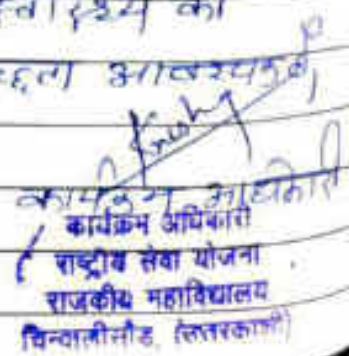 स्वास्थ्य का
आवश्यक है
कार्यक्रम अधिकारी
कार्यक्रम अधिकारी
राष्ट्रीय सेवा योजना
राजकीय महाविद्यालय
चिन्यालीसौड, (उत्तरकाशी)